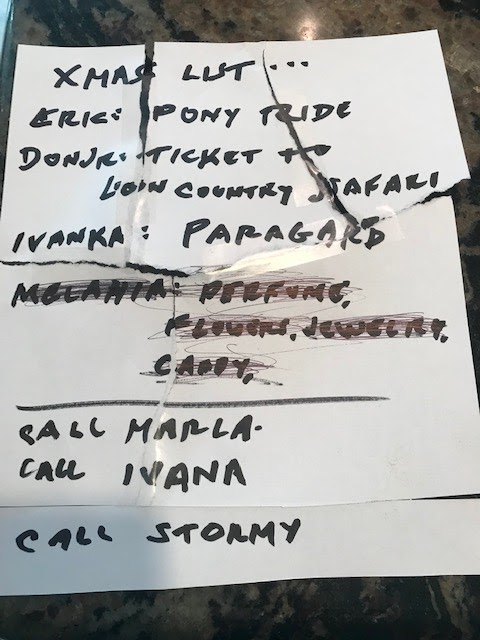 XMAS LIST...
ERIC: PONY RIDE
DONJR: TICKET TO
LOIN COUNTRY SAFARI
IVANKA: PARAGARD
MELANIA: PERFUME,
FLOWERS, JEWELRY,
CANDY,
CALL MARLA.
CALL IVANA
CALL STORMY